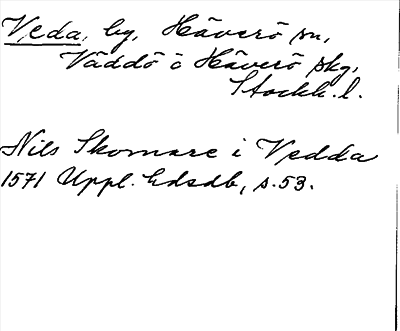 Veda, by, Häverö sn,
Väddö o Häverö skg,
Stockh. l.
Nils Skomare i Vedda
1571 Uppl. Edsdb, s. 53.